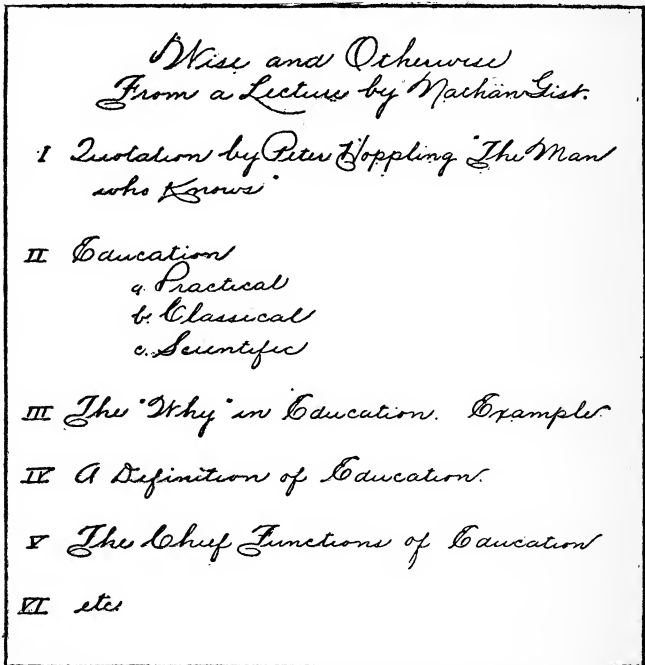 Wise and Otherwise
From a Lecture by Nathan Gist.
I Quotation by Peter Hoppling "The Man
who Knows"
II Education
a. Practical
b. Classical
c. Scientific
III The "Why" in Education. Example.
IV A Definition of Education.
V The Chief Functions of Education
VI etc